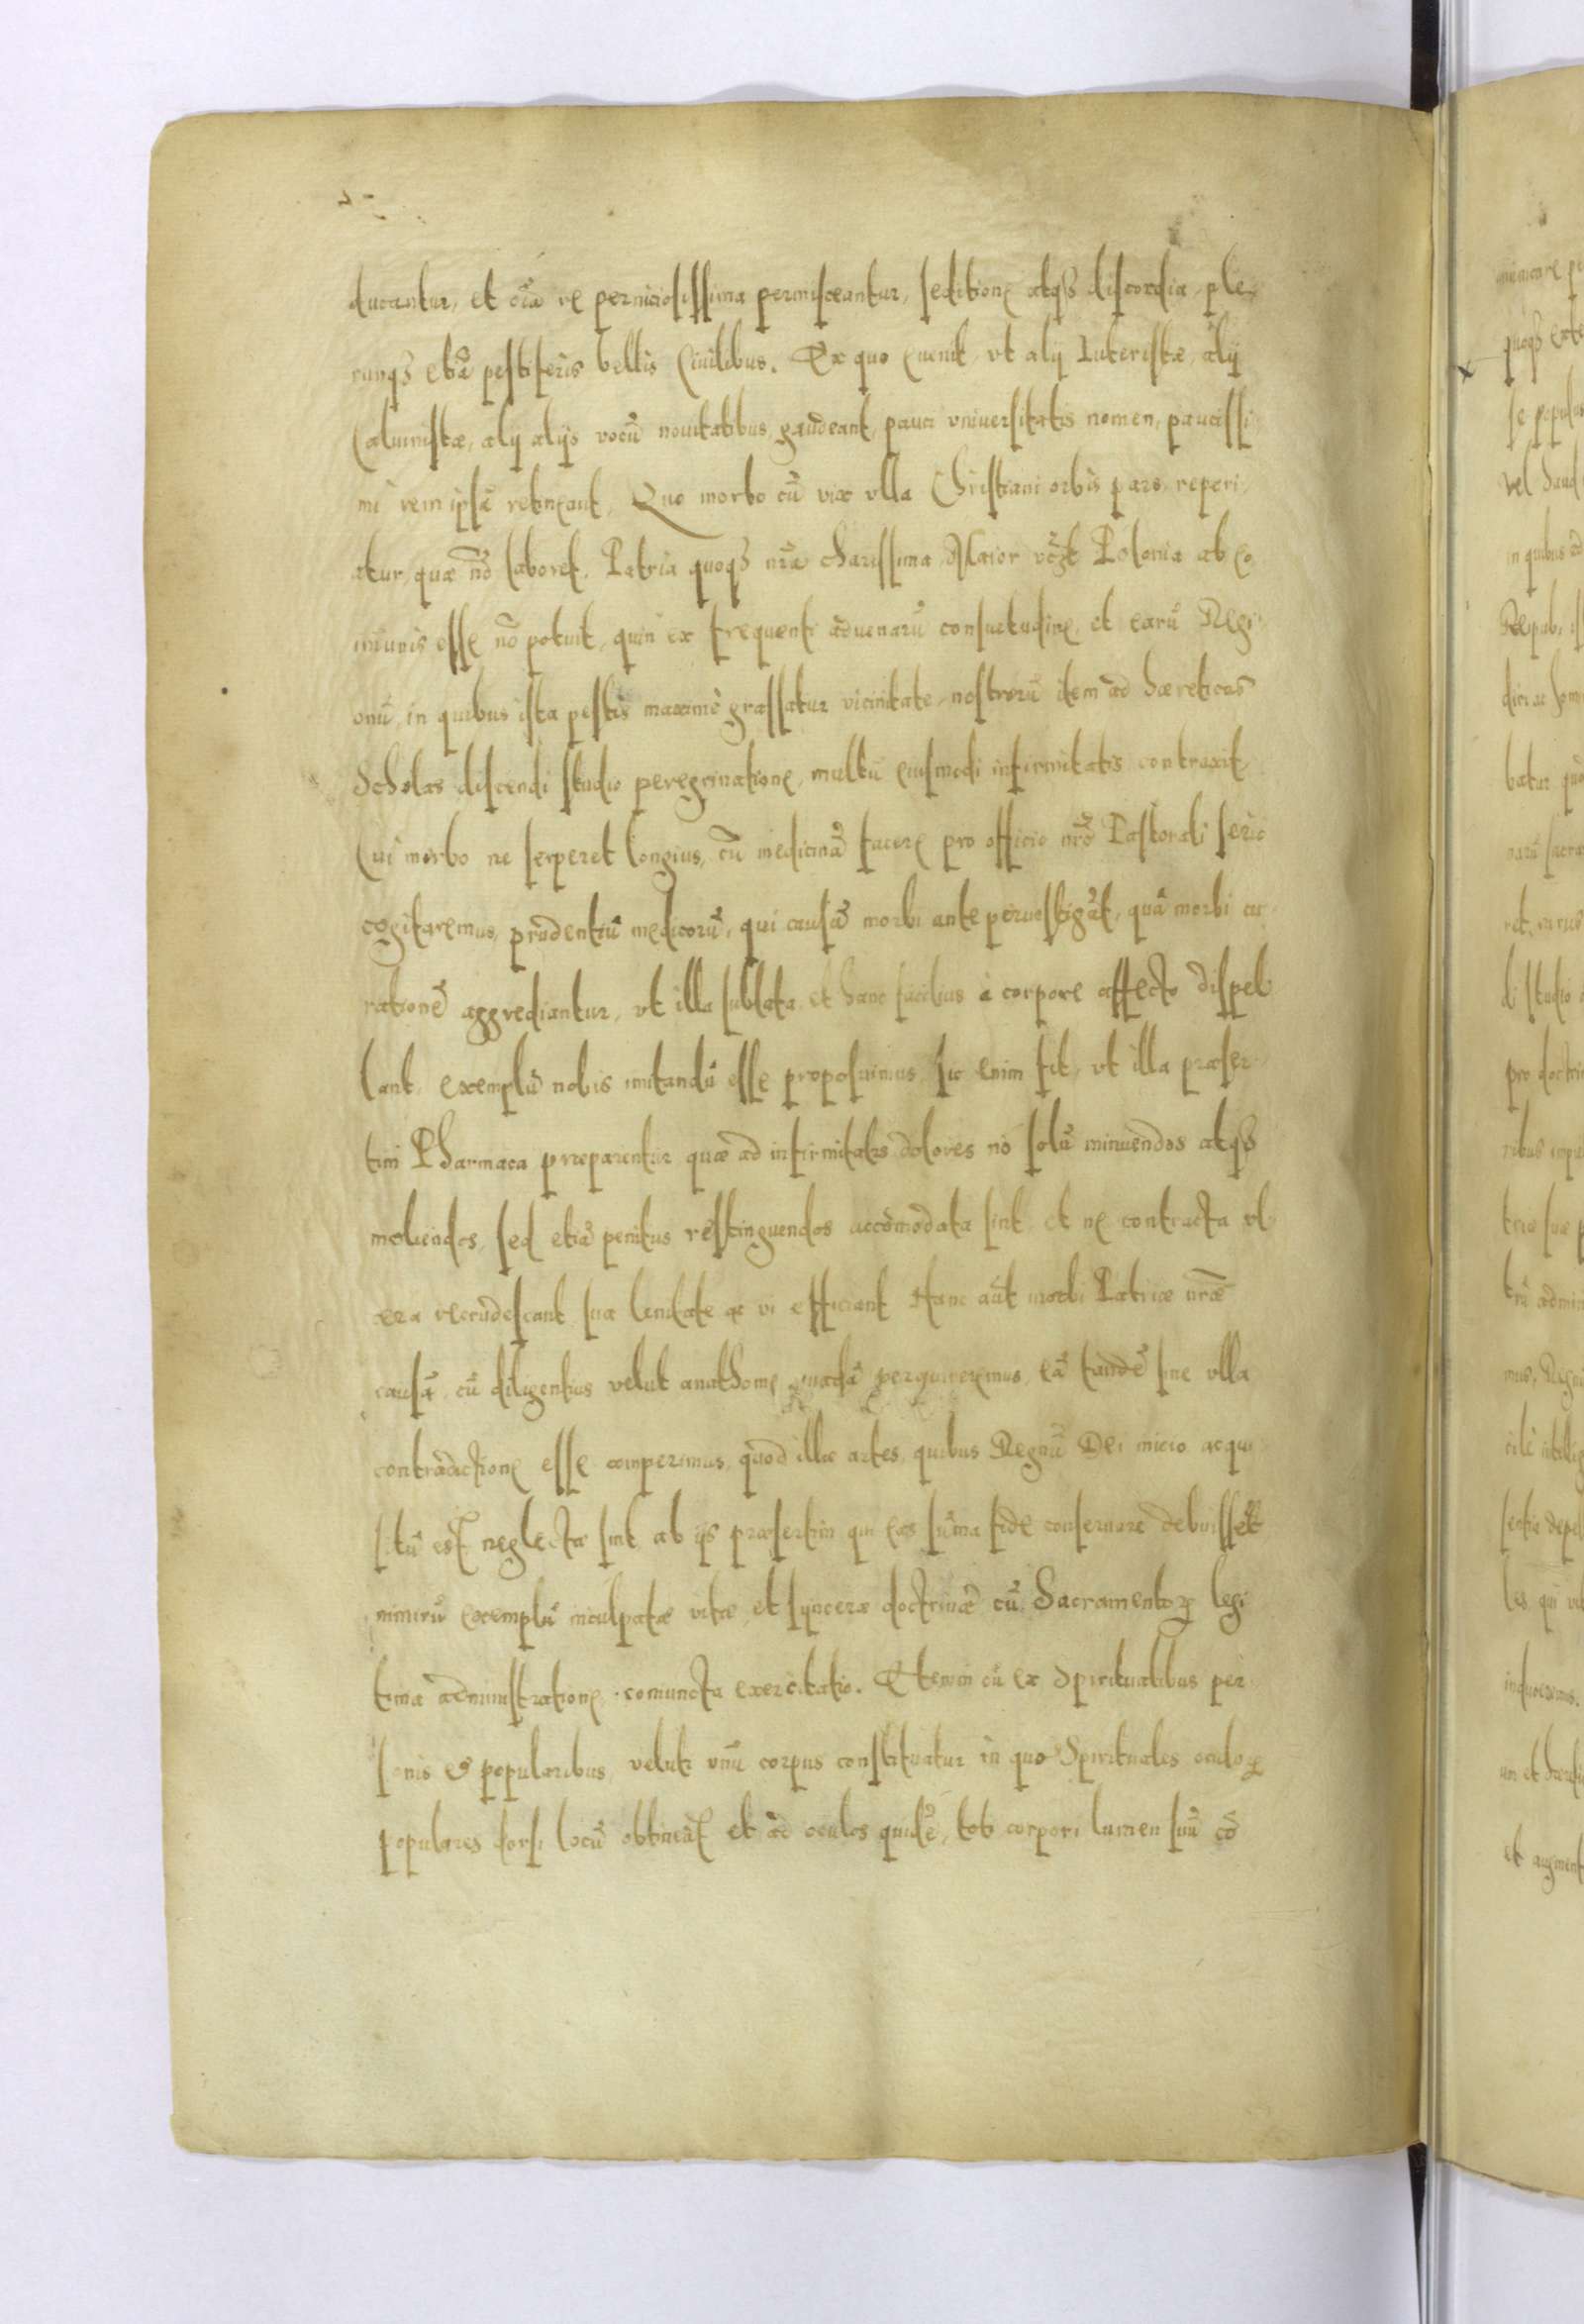 ducantur, et oĩa re perniciosissima permisceantur, seditione atqȝ discordia, ple
runqȝ etiã pestiferis bellis Ciuilibus. Ex quo euenit, vt alij Luteristæ, alij
Caluinistæ, alij alijs vocũ nouitatibus gaudeant, pauci vniuersitatis nomen, paucissi
mi rem ipsã retineant. Quo morbo cũ vix vlla Christiani orbis pars reperi
atur, quæ nõ laboret, Patria quoqȝ nr̃a charissima, Maior Polonia ab eo
immunis esse nõ potuit, quin ex frequenti aduenarũ consuetudine, et earũ Regi
onũ, in quibus ista pestis maximè grassatur vicinitate, nostrorũ item ad hæreticas
Scholas discendi studio peregrinatione, multũ eiusmodi infirmitatis contraxit
Cui morbo ne serperet longius, cũ medicinã facere pro officio nr̃o Pastorali serio
cogitaremus, prudentiũ medicorũ, qui causã morbi ante peruestigãt, quã morbi cu
rationẽ aggrediantur, vt illa sublata, et hanc facilius à corpore affecto dispel
lant, exemplũ nobis imitandũ esse proposuimus, sic enim fit, vt illa præser
tim Pharmaca præparentur quæ ad infirmitatis dolores nõ solũ minuendos atqȝ
moliendos, sed etiã penitus restinguendos accõmodata sint, et ne contracta vl
cera recrudescant sua lenitate ac vi efficiant Hanc aũt morbi Patriæ nr̃æ
causã, cũ diligentius velut anathome quadã perquireremus, eã tandẽ sine vlla
contradictione esse comperimus, quod illæ artes, quibus Regnũ Dei inicio acqui
sitũ est neglectæ sint ab ijs præsertim qui eas sũma fide conseruare debuissẽt
nimirũ exemplũ inculpatæ vitæ, et synceræ doctrinæ cũ Sacramentoꝝ legi
tima administratione, coniuncta exercitatio. Etenim cũ ex Spiritualibus per
sonis & popularibus, veluti vnũ corpus constituatur in quo Spirituales oculoꝝ
populares dorsi locũ obtineãt et ad oculos quidẽ, toti corpori lumen suũ cõ